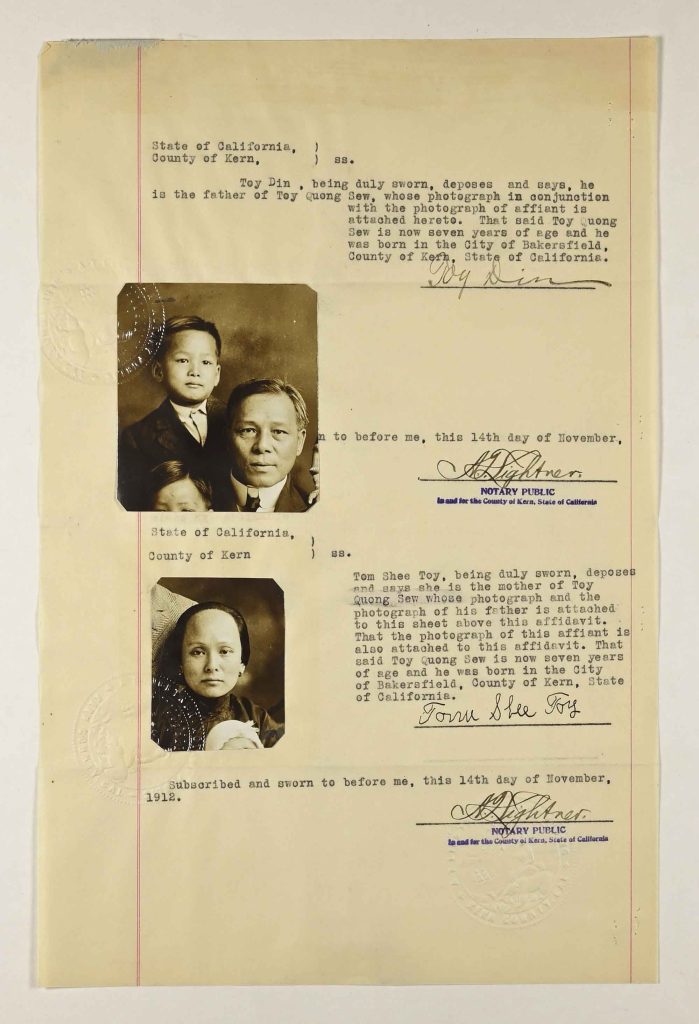 State of California, )
County of Kern, ) ss.
Toy Din , being duly sworn, deposes and says, he
is the father of Toy Quong Sew, whose photograph in conjunction
with the photograph of affiant is
attached hereto. That said Toy Quong
Sew is now seven years of age and he
was born in the City of Bakersfield,
County of Kern, State of California.
Toy Din
n to before me, this 14th day of November,
NOTARY PUBLIC
In and for the County of Kern, State of California
State of California, )
County of Kern ) ss.
Tom Shee Toy, being duly sworn, deposes
and says she is the mother of Toy
Quong Sew whose photograph and the
photograph of his father is attached
to this sheet above this affidavit.
That the photograph of this affiant is
also attached to this affidavit. That
said Toy Quong Sew is now seven years
of age and he was born in the City
of Bakersfield, County of Kern, State
of California.
Tom Shee Toy
Subscribed and sworn to before me, this 14th day of November,
1912.
NOTARY PUBLIC
In and for the County of Kern, State of California